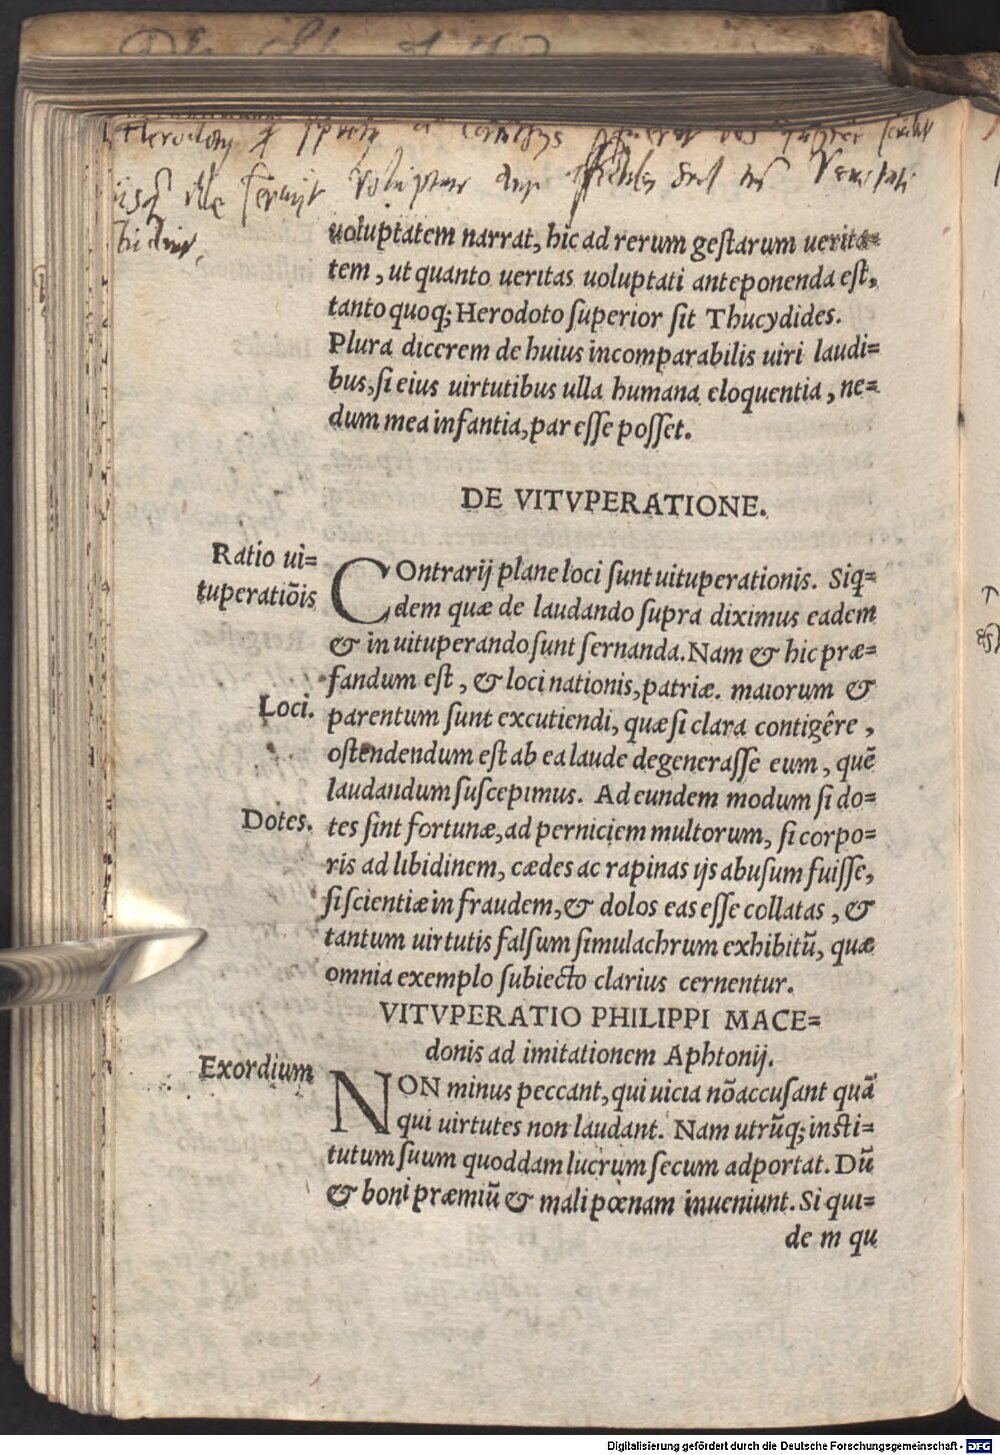 voluptatem narrat, hic ad rerum gestarum uerita=
tem, ut quanto ueritas uoluptati anteponenda est,
tanto quoq; Herodoto superior sit Thucydides.
Plura dicerem de huius incomparabilis uiri laudi=
bus, si eius uirtutibus ulla humana eloquentia, ne=
dum mea infantia, par esse posset.
DE VITVPERATIONE.
Ratio ui=
tuperatiõis
COntrarij plane loci sunt uituperationis. Siq=
dem quæ de laudando supra diximus eadem
& in uituperando sunt sernanda. Nam & hic præ=
fandum est, & loci nationis, patriæ. maiorum &
Loci.
parentum sunt excutiendi, quæ si clara contigêre,
ostendendum est ab ea laude degenerasse eum, quē
laudandum suscepimus. Ad eundem modum si do=
Dotes.
tes sint fortunæ, ad perniciem multorum, si corpo=
ris ad libidinem, cædes ac rapinas ijs abusum fuisse,
si scientiæ in fraudem, & dolos eas esse collatas, &
tantum uirtutis falsum simulachrum exhibitū, quæ
omnia exemplo subiecto clarius cernentur.
VITVPERATIO PHILIPPI MACE=
donis ad imitationem Aphtonij.
Exordium
NON minus peccant, qui uicia nõ accusant quā
qui uirtutes non laudant. Nam utrūq; insti=
tutum suum quoddam lucrum secum adportat. Dū
& boni præmiū & mali pœnam inueniunt. Si qui=
de m qu
Digitalisierung gefördert durch die Deutsche Forschungsgemeinschaft - DFG